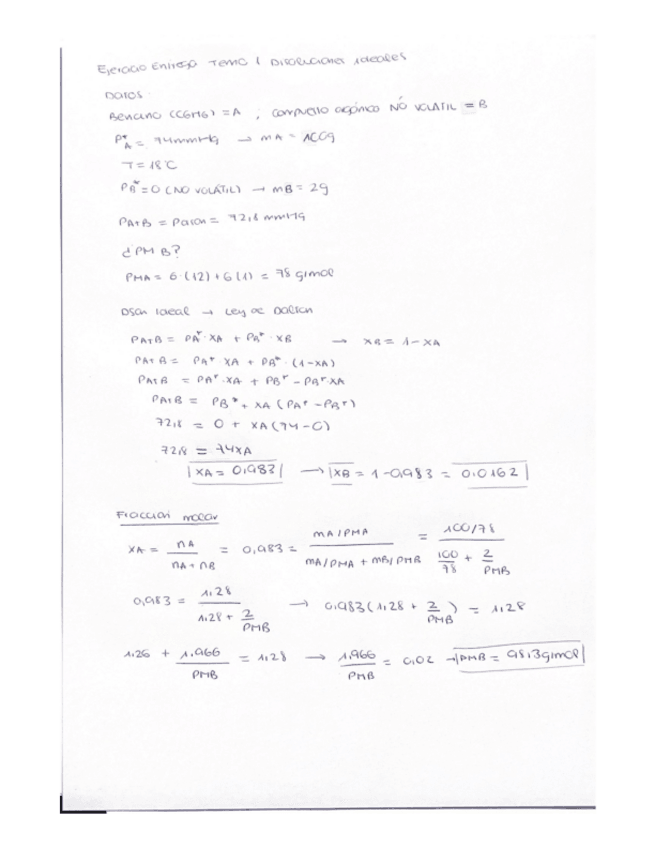 Ejercicio Entrega Tema 1 Disoluciones ideales
Datos:
Benceno (C6H6) = A ; compuesto orgánico NO VOLATIL = B
PA* = 74mmHg → mA = 100g
T = 18°C
PB* = 0 (NO VOLÁTIL) → mB = 2g
PA+B = = 72,8 mmHg
¿PM B?
PMA = 6·(12) + 6(1) = 78 g/mol
Dson ideal → Ley de Dalton
PA+B = PA*·XA + PB*·XB → XB = 1-XA
PA+B = PA*·XA + PB*·(1-XA)
PA+B = PA*·XA + PB* - PB*XA
PA+B = PB* + XA (PA* - PB*)
72,8 = 0 + XA (74-0)
72,8 = 74XA
XA = 0,983 → XB = 1-0,983 = 0,0162
Fracción molar
XA = nA / nA + nB = 0,983 = mA/PMA / mA/PMA + mB/PMB = 100/78 / 100/78 + 2/PMB
0,983 = 1,28 / 1,28 + 2/PMB → 0,983 (1,28 + 2/PMB) = 1,28
1,26 + 1,966/PMB = 1,28 → 1,966/PMB = 0,02 → PMB = 98,3g/mol